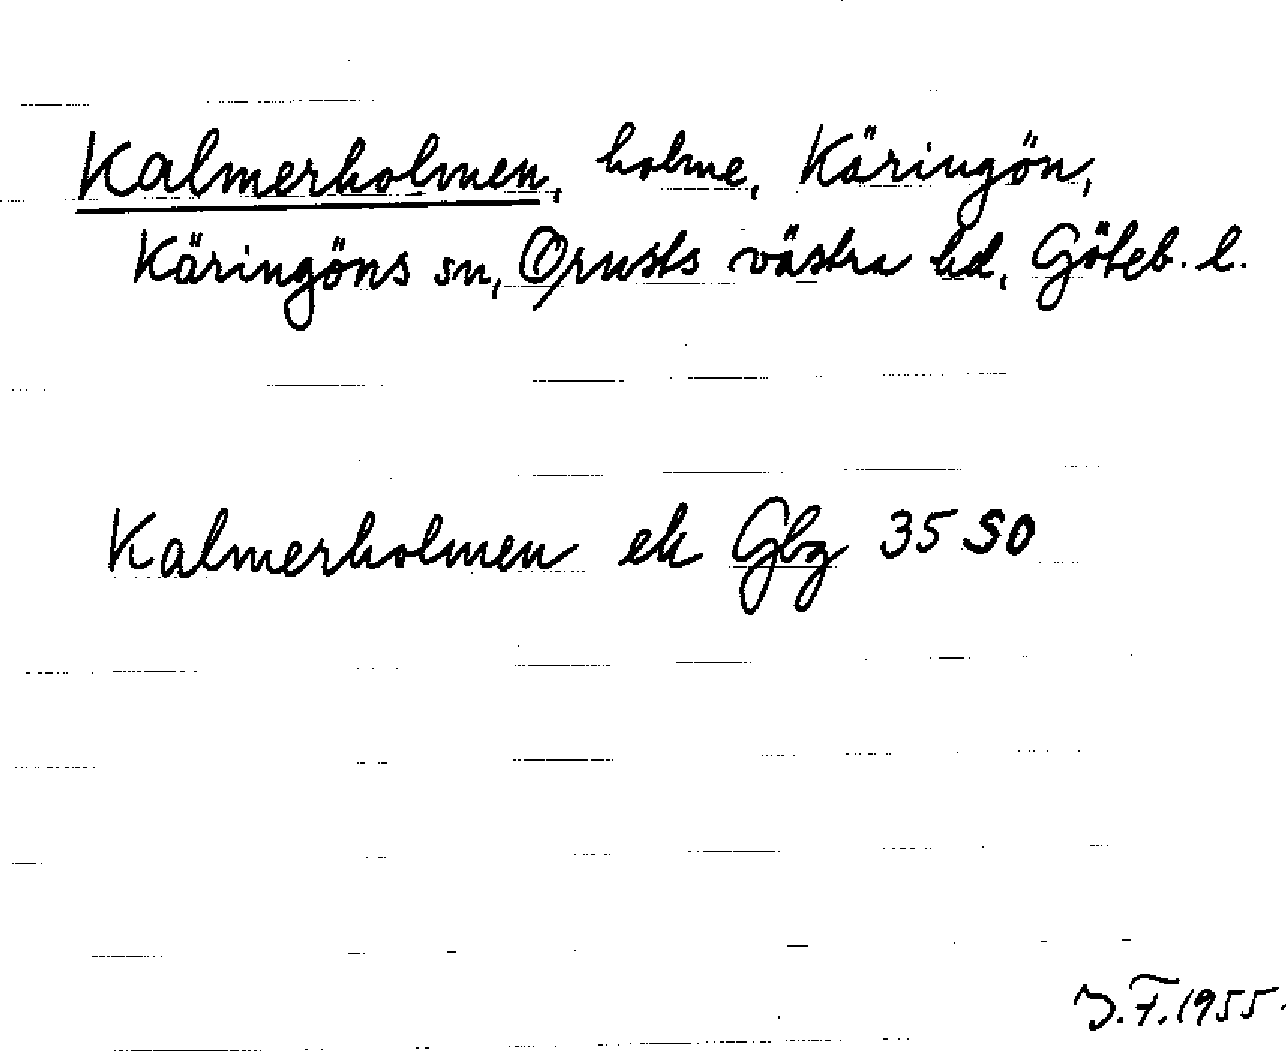 Kalmerholmen, holme, Käringön,
Käringöns sn, Orusts västra hd, Göteb. l.
Kalmerholmen ek Gbg 35 SO
J.F. 1955.